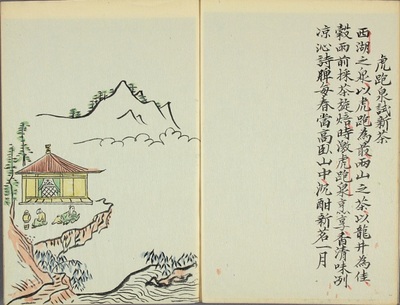 虎跑泉試新茶
西湖之泉以虎跑為最兩山之茶以龍井為佳
穀雨前採茶旋焙時激虎跑泉烹享香清味冽
涼沁詩脾每春當高臥山中沉酣新茗一月